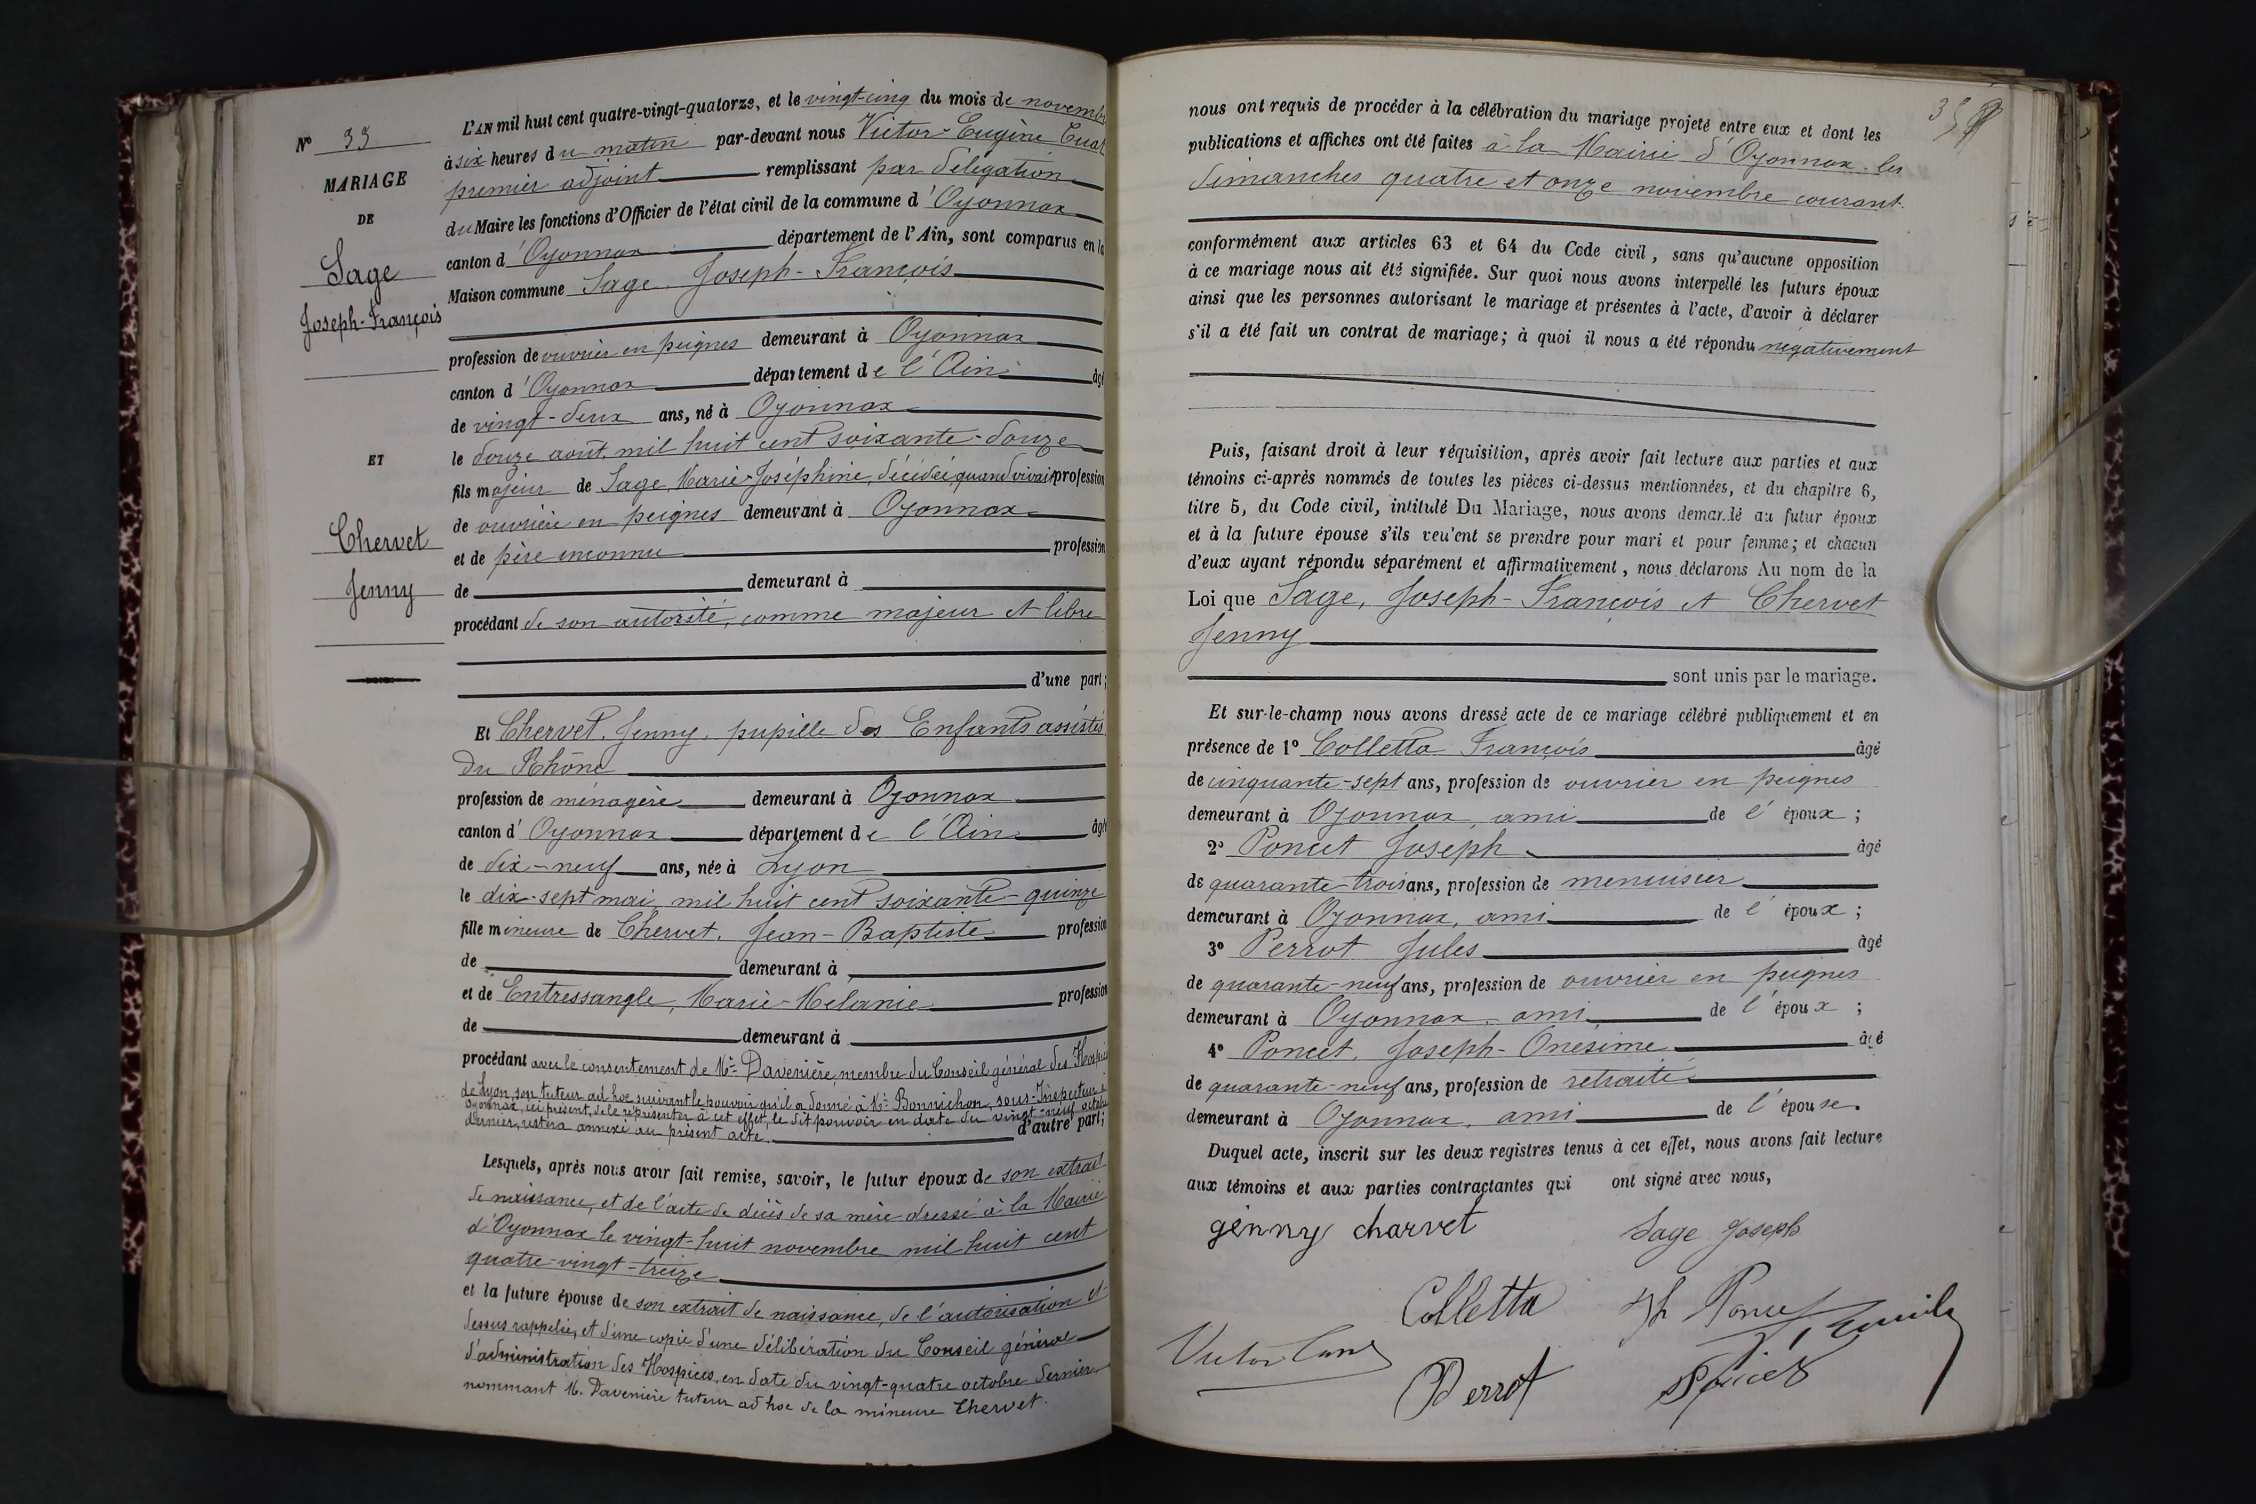 N° 33
MARIAGE
DE
Sage
Joseph-François
ET
Chervet
Jenny
L'AN mil huit cent quatre-vingt-quatorze, et le vingt-cinq du mois de novembre
à six heures du matin par-devant nous Victor-Eugène
premier adjoint remplissant par délégation
du Maire les fonctions d'Officier de l'état civil de la commune d'Oyonnax
canton d'Oyonnax département de l'Ain, sont comparus en la
Maison commune Sage Joseph-François
profession de ouvrier en peignes demeurant à Oyonnax
canton d'Oyonnax département de l'Ain âgé
de vingt-deux ans, né à Oyonnax
le douze août mil huit cent soixante-douze
fils majeur de Sage, Marie-Joséphine, décédée, quand vivait profession
de ouvrière en peignes demeurant à Oyonnax
et de père inconnu profession
de demeurant à
procédant de son autorité, comme majeur et libre
d'une part;
Et Chervet, Jenny, pupille des Enfants assistés
du Rhône
profession de ménagère demeurant à Oyonnax
canton d'Oyonnax département de l'Ain âgée
de dix-neuf ans, née à Lyon
le dix-sept mai mil huit cent soixante-quinze
fille mineure de Chervet, Jean-Baptiste profession
de demeurant à
et de Entressangle, Marie-Mélanie profession
de demeurant à
procédant avec le consentement de Mr Davenière, membre du Conseil général des Hospices
de Lyon, son tuteur ad hoc suivant le pouvoir qu'il a donné à Mr Bonnichon, sous-Inspecteur à
Oyonnax, ici présent, de le représenter à cet effet, le dit pouvoir en date du vingt-neuf octobre
dernier, restera annexé au présent acte. d'autre part;
Lesquels, après nous avoir fait remise, savoir, le futur époux de son extrait
de naissance, et de l'acte de décès de sa mère dressé à la Mairie
d'Oyonnax le vingt-huit novembre mil huit cent
quatre-vingt-treize
et la future épouse de son extrait de naissance, de l'autorisation ci-
dessus rappelée, et d'une copie d'une délibération du Conseil général
d'administration des Hospices, en date du vingt-quatre octobre dernier
nommant M. Davenière tuteur ad hoc de la mineure Chervet.
nous ont requis de procéder à la célébration du mariage projeté entre eux et dont les
publications et affiches ont été faites à la Mairie d'Oyonnax les
dimanches quatre et onze novembre courant.
conformément aux articles 63 et 64 du Code civil, sans qu'aucune opposition
à ce mariage nous ait été signifiée. Sur quoi nous avons interpellé les futurs époux
ainsi que les personnes autorisant le mariage et présentes à l'acte, d'avoir à déclarer
s'il a été fait un contrat de mariage; à quoi il nous a été répondu négativement
Puis, faisant droit à leur réquisition, après avoir fait lecture aux parties et aux
témoins ci-après nommés de toutes les pièces ci-dessus mentionnées, et du chapitre 6,
titre 5, du Code civil, intitulé Du Mariage, nous avons demandé au futur époux
et à la future épouse s'ils veulent se prendre pour mari et pour femme; et chacun
d'eux ayant répondu séparément et affirmativement, nous déclarons Au nom de la
Loi que Sage, Joseph-François et Chervet
Jenny
sont unis par le mariage.
Et sur-le-champ nous avons dressé acte de ce mariage célébré publiquement et en
présence de 1° Colletta François âgé
de cinquante-sept ans, profession de ouvrier en peignes
demeurant à Oyonnax, ami de l'époux;
2° Poncet Joseph âgé
de quarante-trois ans, profession de menuisier
demeurant à Oyonnax, ami de l'époux;
3° Perrot Jules âgé
de quarante-neuf ans, profession de ouvrier en peignes
demeurant à Oyonnax, ami de l'époux;
4° Poncet, Joseph-Onésime âgé
de quarante-neuf ans, profession de retraité
demeurant à Oyonnax, ami de l'épouse.
Duquel acte, inscrit sur les deux registres tenus à cet effet, nous avons fait lecture
aux témoins et aux parties contractantes qui ont signé avec nous,
génny charvet Sage Joseph
Colletta
Victor
Perrot